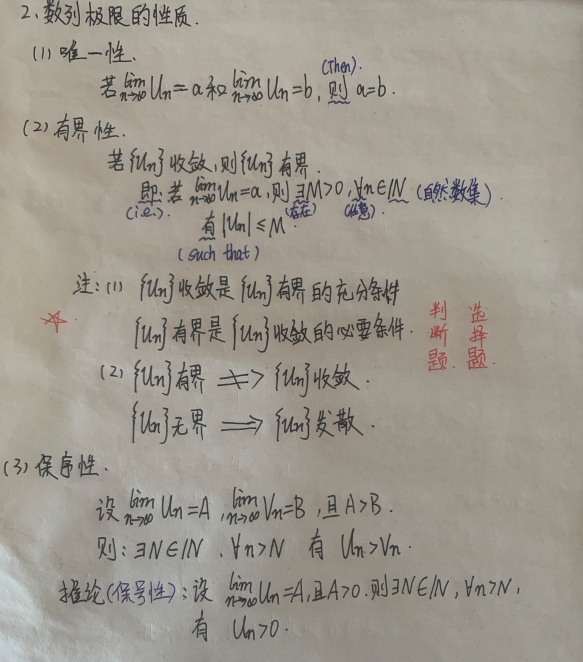 2、数列极限的性质.
(1) 唯一性.
若 lim n→∞ Un = a 和 lim n→∞ Un = b, 则 (Then). a=b.
(2) 有界性.
若{Un}收敛,则{Un}有界.
即: 若 lim n→∞ Un = a, 则 ∃M>0, ∀n∈ℕ (自然数集).
(i.e.). (存在) (任意)
有 |Un| ≤ M.
(such that)
注: (1) {Un}收敛是{Un}有界的充分条件
{Un}有界是{Un}收敛的必要条件.
判断题. 选择题.
(2) {Un}有界 ≠> {Un}收敛.
{Un}无界 => {Un}发散.
(3) 保序性.
设 lim n→∞ Un = A, lim n→∞ Vn = B, 且 A>B.
则: ∃N∈ℕ, ∀n>N 有 Un>Vn.
推论(保号性): 设 lim n→∞ Un = A, 且A>0. 则∃N∈ℕ, ∀n>N,
有 Un>0.